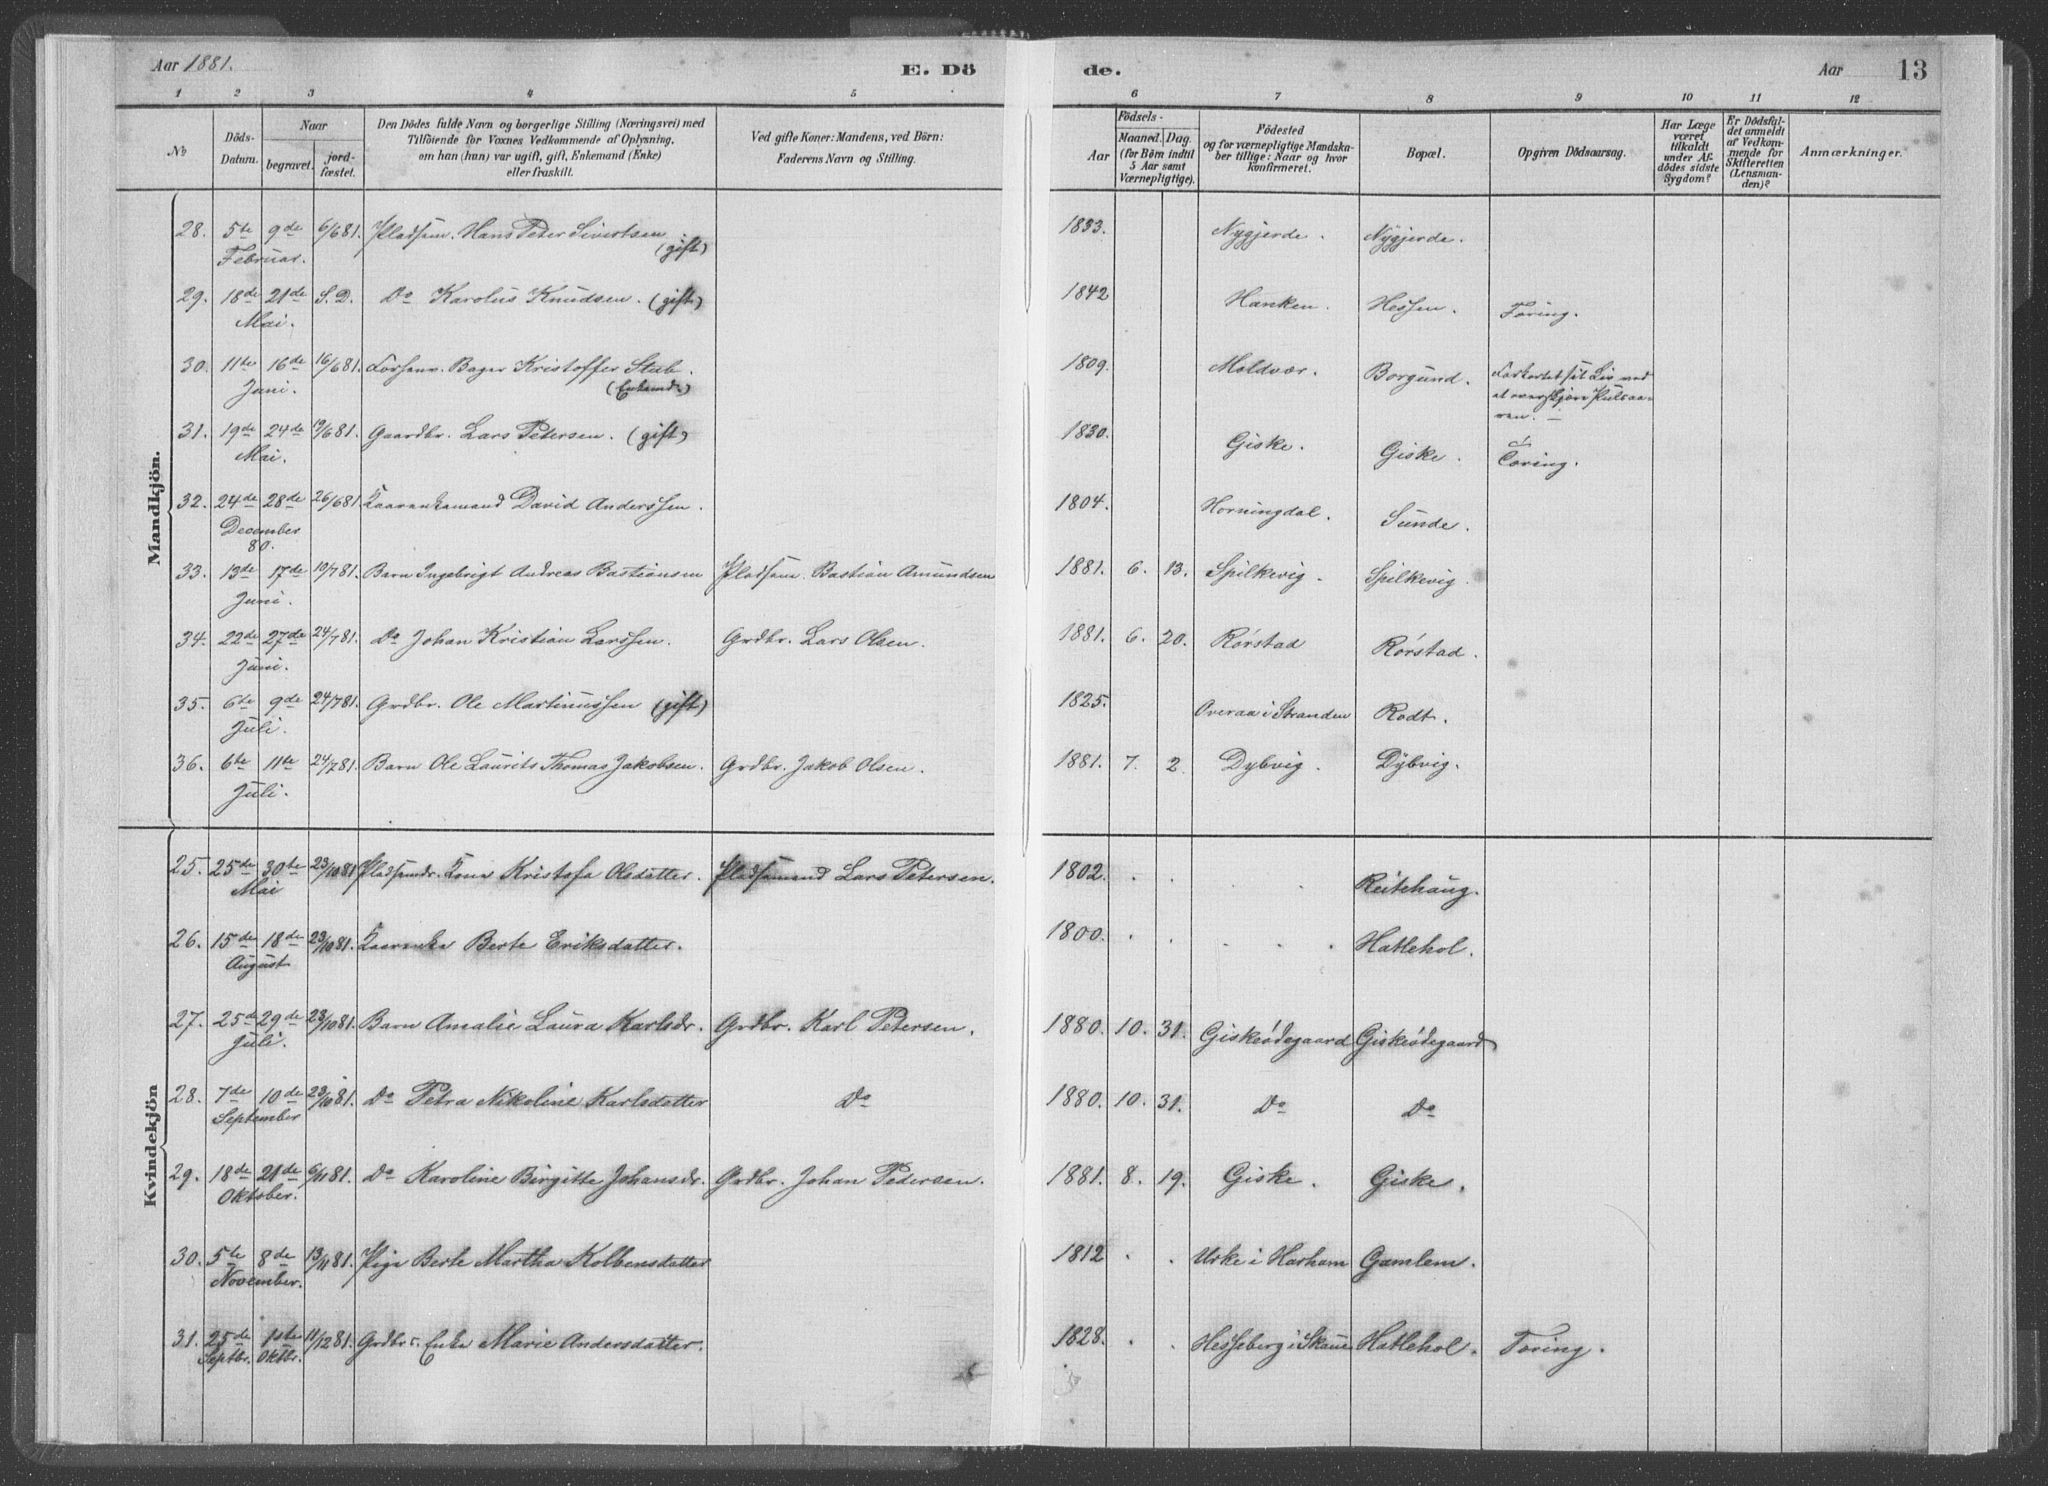 Aar 1881. E. Dö de. Aar 13
1 2 3 4 5 6 7 8 9 10 11 12
No Döds-Datum. Naar begravet. jordfæstet. Den Dödes fulde Navn og borgerlige Stilling (Næringsvei) med Tilföiende for Voxnes Vedkommende af Oplysning, om han (hun) var ugift, gift, Enkemand (Enke) eller fraskilt. Ved gifte Koner: Mandens, ved Börn: Faderens Navn og Stilling. Födsels- Aar Maaned. Dag (for Börn indtil 5 Aar samt Værnepligtige). Födested og for værnepligtige Mandskaber tillige: Naar og hvor konfirmeret. Bopæl. Opgiven Dödsaarsag. Har Læge været tilkaldt under Afdödes sidste Sygdom? Er Dödsfaldet anmeldt af Vedkommende for Skifteretten (Lensmanden)? Anmærkninger.
Mandkjön.
28. 5te Februar. 9de 6/6 81. Pladsm. Hans Peter Sivertsen (gift) 1833. Nygjerde. Nygjerde.
29. 18de Mai. 21de S. D. Do Karolus Knudsen. (gift) 1842 Hanken. Hessen. Tæring.
30. 11te Juni. 16de 16/6 81. Forhenv. Bager Kristoffer Stub. (Enkemd.) 1809. Moldvær. Borgund. Forkortet sit Liv ved at overskjære Pulsaaren.
31. 19de Mai. 24de 19/6 81. Gaardbr. Lars Petersen. (gift) 1830. Giske. Giske. Tæring.
32. 24de December 80. 28de 26/6 81. Kaarenkemand David Anderssen. 1804. Horningdal. Sunde.
33. 13de Juni. 17de 10/7 81. Barn Ingebrigt Andreas Bastiansen Pladsm. Bastian Amundsen 1881. 6. 13. Spilkevig. Spilkevig.
34. 22de Juni. 27de 24/7 81. Do Johan Kristian Larssen. Grdbr. Lars Olsen. 1881. 6. 20. Rørstad Rørstad.
35. 6te Juli. 9de 24/7 81. Grdbr. Ole Martinussen (gift) 1825. Overaa i Stranden Rødt.
36. 6te Juli. 11te 24/7 81. Barn Ole Laurits Thomas Jakobsen. Grdbr. Jakob Olsen. 1881. 7. 2. Dybvig. Dybvig.
Kvindekjön
25. 25de Mai 30te 23/10 81. Pladsmdr. Kone Kristofa Olsdatter. Pladsmand Lars Petersen. 1802. Reitehaug.
26. 15de August 18de 23/10 81. Kaarenke Berte Eriksdatter. 1800. Hatlehol.
27. 25de Juli. 29de 23/10 81. Barn Amalie Laura Karlsdr. Grdbr. Karl Petersen. 1880. 10. 31. Giskeødegaard Giskeødegaard
28. 7de September 10de 23/10 81. Do Petra Nikoline Karlsdatter Do 1880. 10. 31. Do Do
29. 18de Oktober. 21de 6/11 81. Do Karoline Birgitte Johansdr. Grdbr. Johan Pedersen. 1881. 8. 19. Giske. Giske.
30. 5te November. 8de 13/11 81. Pige Berte Martha Kolbensdatter 1812 Urke i Harham Gamlem.
31. 25de Septbr. 1ste Oktbr. 11/12 81. Grdbr. Enke Marie Andersdatter. 1828. Hesseberg i Skaue Hatlehol. Tæring.